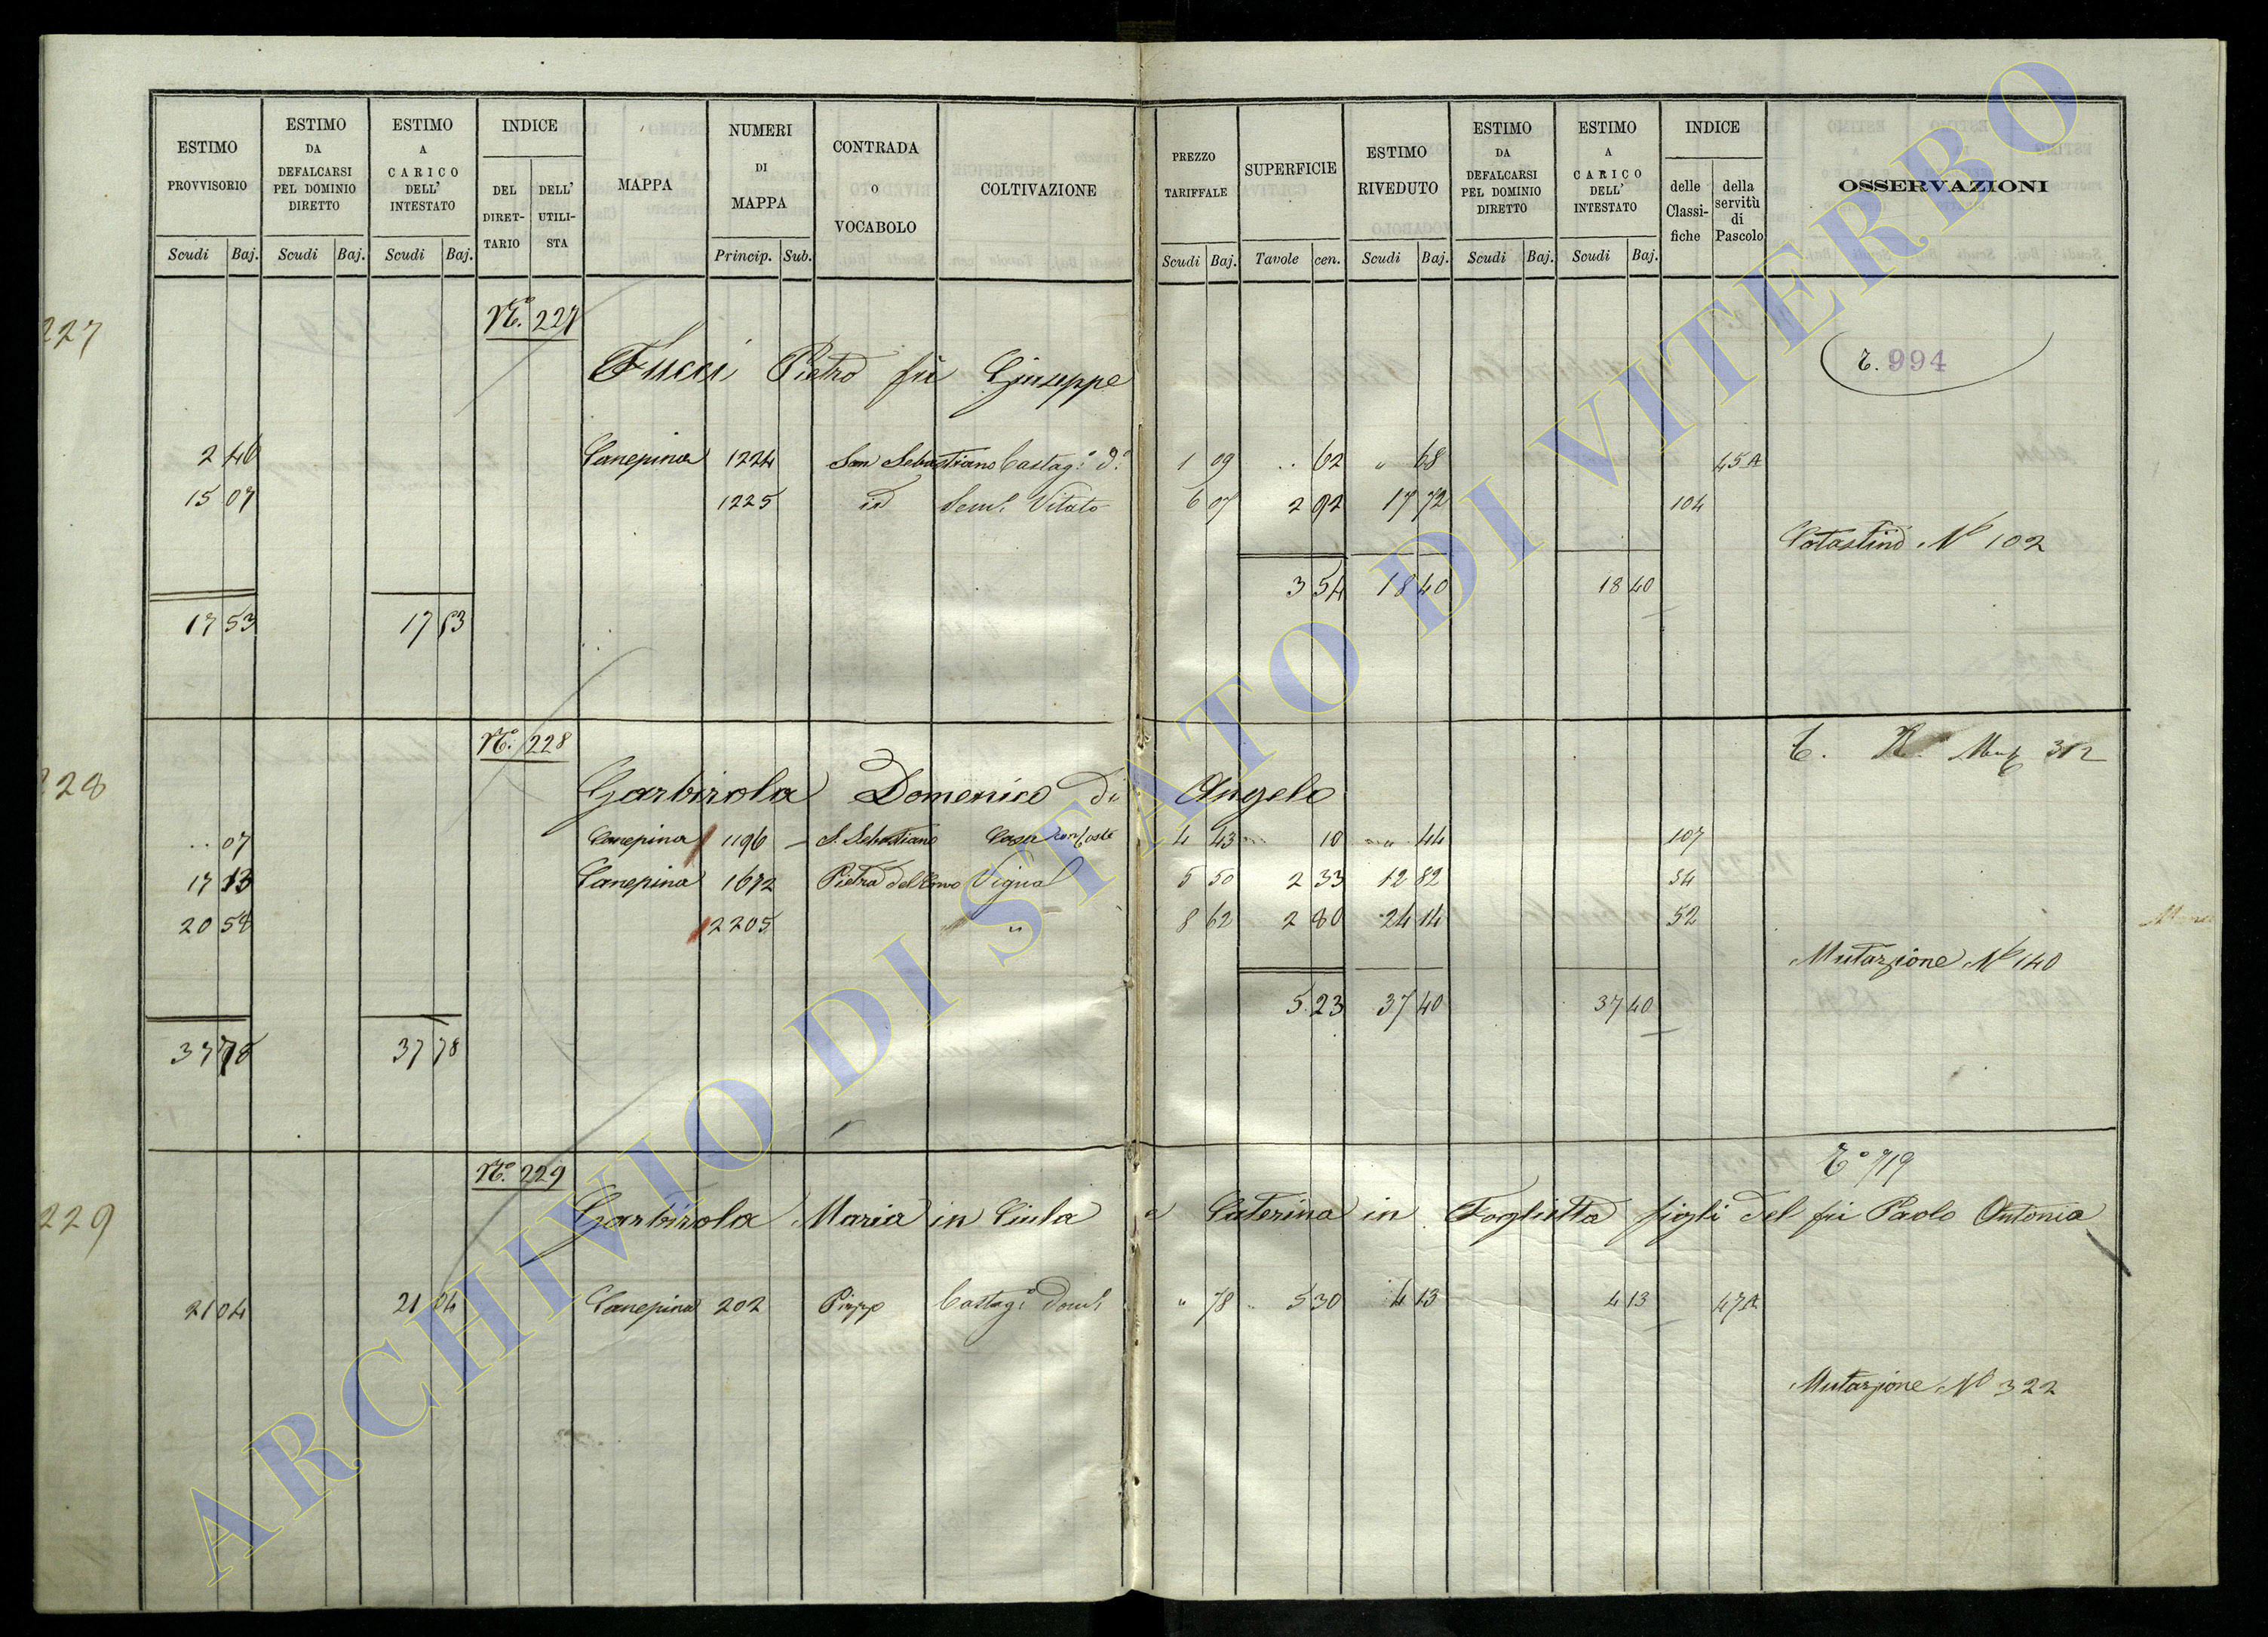 ESTIMO PROVVISORIO Scudi Baj.
ESTIMO DA DEFALCARSI PEL DOMINIO DIRETTO Scudi Baj.
ESTIMO A CARICO DELL' INTESTATO Scudi Baj.
INDICE DEL DIRET-TARIO DELL' UTILI-STA
MAPPA
NUMERI DI MAPPA Princip. Sub.
CONTRADA O VOCABOLO
COLTIVAZIONE
PREZZO TARIFFALE Scudi Baj.
SUPERFICIE Tavole cen.
ESTIMO RIVEDUTO Scudi Baj.
ESTIMO DA DEFALCARSI PEL DOMINIO DIRETTO Scudi Baj.
ESTIMO A CARICO DELL' INTESTATO Scudi Baj.
INDICE delle Classi-fiche della servitù di Pascolo
OSSERVAZIONI
227 N.° 227
Fucci Pietro fu Giuseppe
T. 994
2 46 Canepina 1224 San Sebastiano Castag.° d.° 1 09 .. 62 " 68 45A
15 07 1225 id Sem. Vitato 6 07 2 92 17 72 104
Catastino N° 102
3 54 18 40 18 40
17 53 17 53
228 N.° 228
T. R. 312
Garbirola Domenico di Angelo
.. 07 Canepina 1196 S. Sebastiano Casa con 4 43 10 " 44 107
17 13 Canepina 1672 Pietra del Corvo Vigna 5 50 2 33 12 82 34
20 58 2205 " 8 62 2 80 24 14 52
Mutazione N° 140
5 23 37 40 37 40
37 78 37 78
229 N.° 229
T° 719
Garbirola Maria in Ciula e Caterina in Foglietta figli del fu Paolo Antonio
21 04 21 04 Canepina 202 Castag.° " 78 5 30 4 13 4 13 47A
Mutazione N° 322
ARCHIVIO DI STATO DI VITERBO